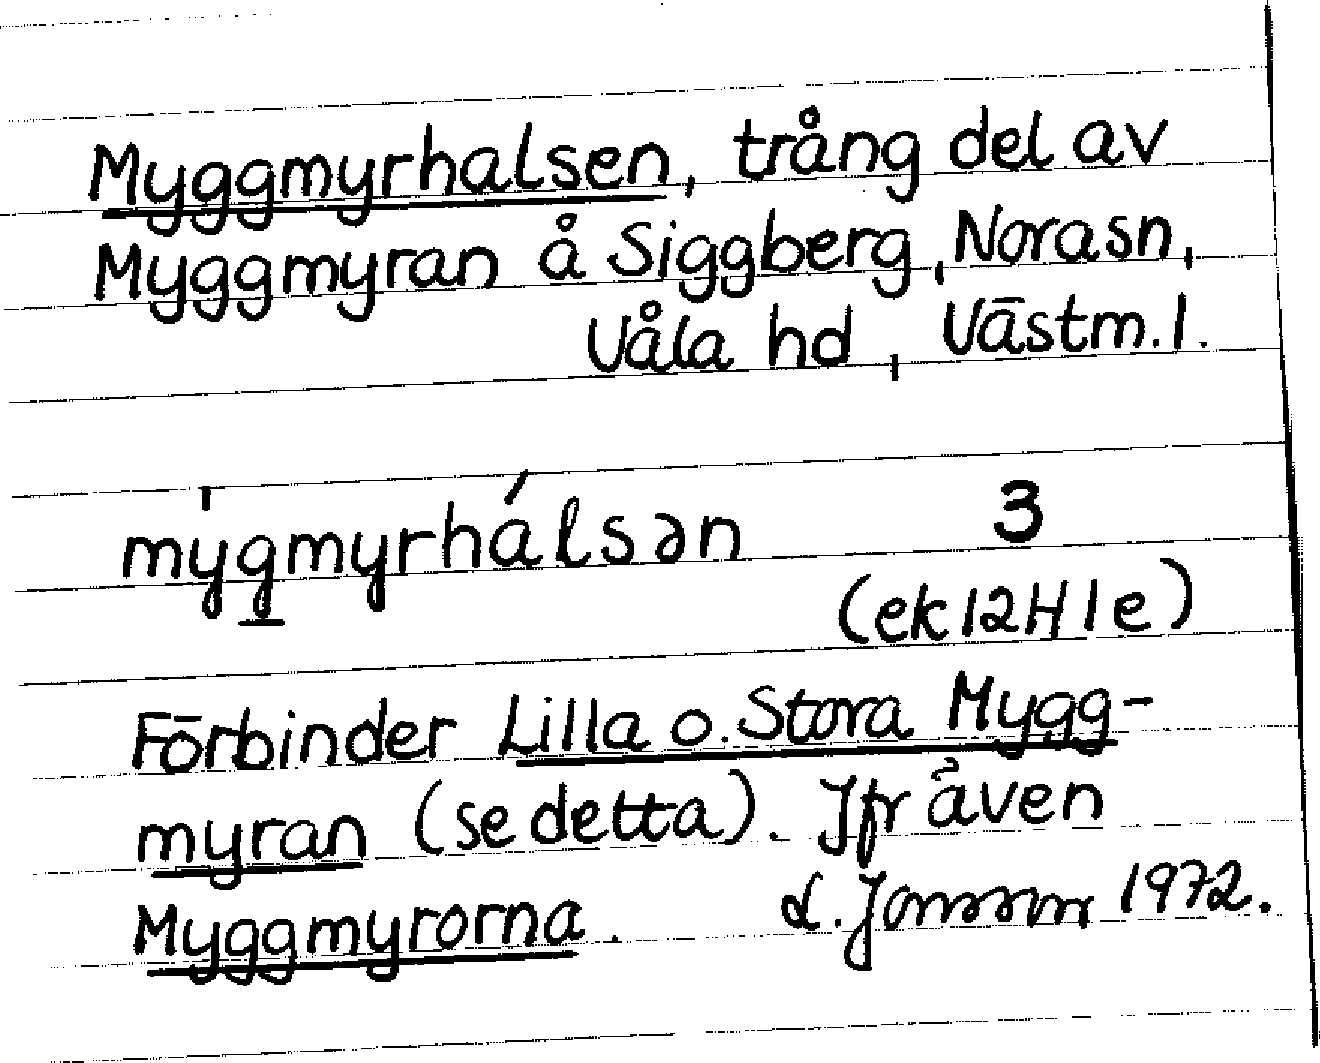 Myggmyrhalsen, trång del av
Myggmyran å Siggberg, Norasn,
Våla hd, Västm.l.
my̍g̲myrhálsən 3
(ek 12H1e)
Förbinder Lilla o. Stora Mygg-
myran (se detta). Jfr även
Myggmyrorna. L. Jonsson 1972.